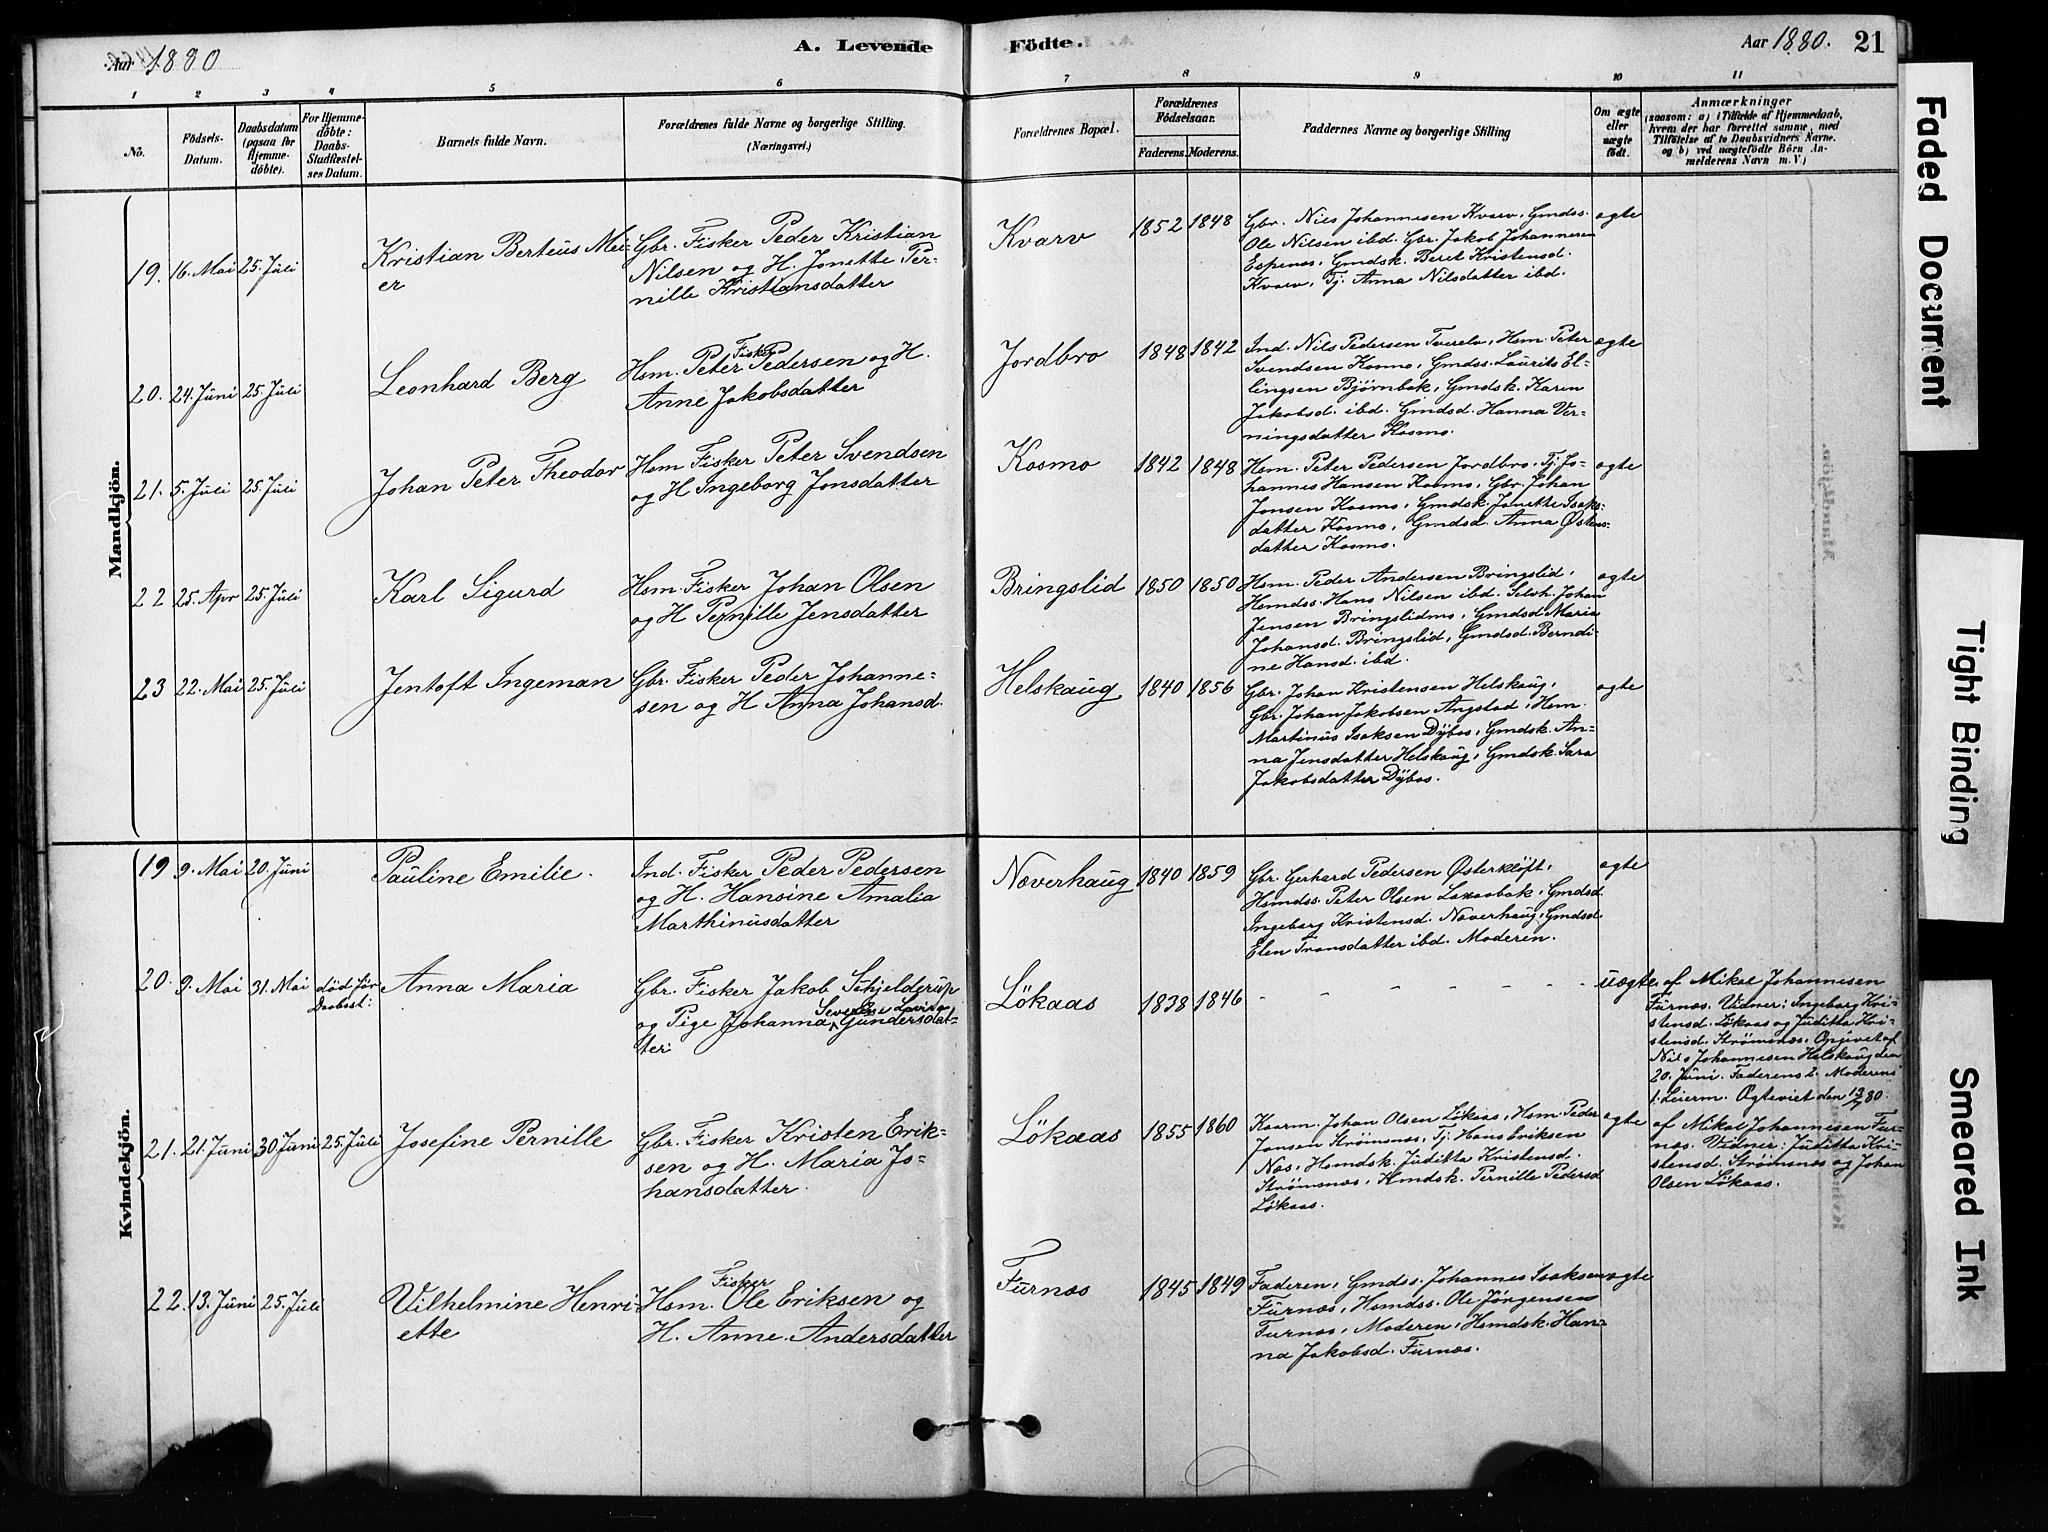 Aar 1880
A. Levende
Födte.
Aar 1880.
21
1
2
3
4
5
6
7
8
9
10
11
No.
Födsels-
Datum.
Daabsdatum
(ogsaa for
Hjemme-
döbte).
For Hjemme-
döbte:
Daabs-
Stadfæstel-
ses Datum.
Barnets fulde Navn.
Forældrenes fulde Navne og borgerlige Stilling.
(Næringsvei.)
Forældrenes Bopæl.
Forældrenes
Födselsaar.
Faderens.
Moderens.
Faddernes Navne og borgerlige Stilling
Om ægte
eller
uægte
födt.
Anmærkninger
(saasom: a) i Tilfælde af Hjemmedaab,
hvem der har forrettet samme, med
Tilföielse af to Daabsvidners Navne.
og b) ved uægtefödte Börn An-
melderens Navn m. V.)
Mandkjön.
19. 16. Mai 25. Juli
Kristian Berteus Mei-
er
Gbr. Fisker Peder Kristian
Nilsen og H. Jonette Per-
nille Kristiansdatter
Kvarv
1852 1848
Gbr. Nils Johannesen Kvarv, Gmdss.
Ole Nilsen ibd. Gbr. Jakob Johannesen
Espenes, Gmdsk. Beret Kristensd.
Kvarv, Tj. Anna Nilsdatter ibd.
ægte
20. 24. Juni 25. Juli
Leonhard Berg
Fisker
Hsm. Peter Pedersen og H.
Anne Jakobsdatter
Jordbro
1848 1842
Ind. Nils Pedersen Tverelv, Hsm. Peter
Svendsen Kosmo, Gmdss. Laurits El-
lingsen Bjørnbak, Gmdsk. Karen
Jakobsd. ibd. Gmdsd. Hanna Ver-
ningsdatter Kosmo.
ægte
21. 5. Juli 25. Juli
Johan Peter Theodor
Hsm Fisker Peter Svendsen
og H Ingeborg Jonsdatter
Kosmo
1842 1848
Hsm. Peter Pedersen Jordbro, Tj. Jo-
hannes Hansen Kosmo, Gbr. Johan
Jonsen Kosmo, Gmdsk. Jonette Isaks-
datter Kosmo, Gmdsd. Anna Østens-
datter Kosmo.
ægte
22 25. Apr 25. Juli
Karl Sigurd
Hsm. Fisker Johan Olsen
og H Pernille Jensdatter
Bringslid
1850 1850
Hsm. Peder Andersen Bringslid,
Hsmdss. Hans Nilsen ibd. Selvh. Johan
Jensen Bringslidmo, Gmdsd. Maria
Johansd. Bringslid, Gmdsd. Berndi-
ne Hansd. ibd.
ægte
23 22. Mai 25. Juli
Jentoft Ingeman
Gbr. Fisker Peder Johanne-
sen og H Anna Johansd.
Helskaug
1840 1856
Gbr. Johan Kristensen Helskaug,
Gbr. Johan Jakobsen Angstad, Hsm.
Martinus Isaksen Dybos, Gmdsk. An-
na Jensdatter Helskaug, Gmdsk. Sara
Jakobsdatter Dybos.
ægte
Kvindekjön.
19 9. Mai 20. Juni
Pauline Emilie.
Ind. Fisker Peder Pedersen
og H. Hansine Amalia
Marthinusdatter
Næverhaug
1840 1859
Gbr. Gerhard Pedersen Østerkløft,
Hsmdss. Peter Olsen Laxaabak, Gmdsd.
Ingeborg Kristensd. Næverhaug, Gmdsd.
Elen Transdatter ibd. Moderen.
ægte
20. 9. Mai 31. Mai
død før
Daabsst:
Anna Maria
Gbr. Fisker Jakob Schjelderup
og Pige Johanna Severine Lovise Gundersdat-
ter
Løkaas
1838 1846
- - - - - - -
uægte
af Mikal Johannesen
Furnæs. Vidner: Ingeborg Kri-
stensd. Løkaas og Juditta Kri-
stensd. Strømsnæs, Opgivet af
Nils Johannesen Helskaug den
20. Juni. Faderens 2. Moderens
1. Leierm. Ægteviet den 13/7 80.
21. 21. Juni 30. Juni 25. Juli
Josefine Pernille
Gbr. Fisker Kristen Erik-
sen og H. Maria Jo-
hansdatter.
Løkaas
1855 1860
Kaarm. Johan Olsen Løkaas, Hsm. Peder
Jonsen Strømsnæs, Tj. Hans Eriksen
Næs, Hsmdsk. Juditta Kristensd.
Strømsnæs, Hmdsk. Pernille Pedersd
Løkaas.
ægte
af Mikal Johannesen Fur-
næs. Vidner: Juditta Kri-
stensd. Strømsnæs og Johan
Olsen Løkaas.
22. 13. Juni 25. Juli
Vilhelmine Henri-
ette
Fisker
Hsm. Ole Eriksen og
H. Anne Andersdatter
Furnæs
1845 1849
Faderen, Gmdss. Johannes Isaksen
Furnæs, Hsmdss. Ole Jørgensen
Furnæs, Moderen, Hsmdsk. Han-
na Jakobsd. Furnæs.
ægte
Faded Document
Tight Binding
Smeared Ink